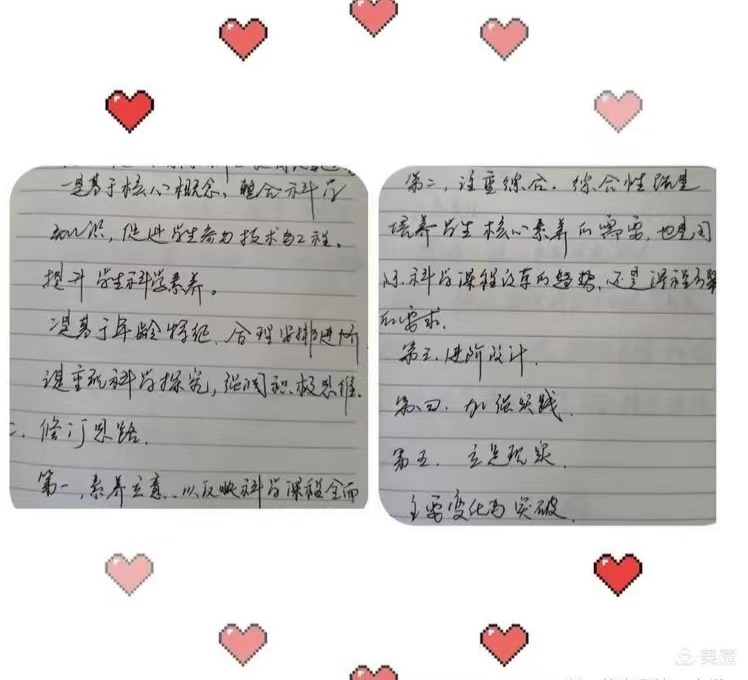 一是基于核心概念，整合科学
知识，促进学生参与技术与工程，
提升学生科学素养。
二是基于年龄特征，合理安排进阶
三是重视科学探究，强调积极思维。
二、修订思路。
第一，素养立意，以反映科学课程全面
第二，注重综合。综合性既是
培养学生核心素养的需要，也是国
际科学课程改革的趋势，还是课程
的需求。
第三，进阶设计。
第四，加强实践。
第五，立足现实。
主要变化与突破。
美篇